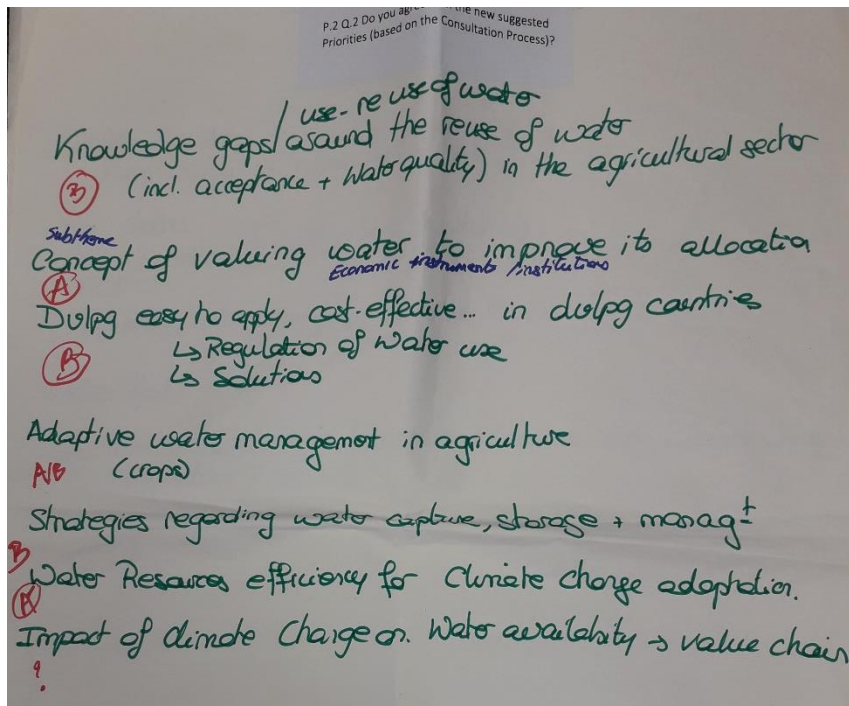 P.2 Q.2 Do you the new suggested
Priorities (based on the Consultation Process)?
/ use-reuse of water
Knowledge gaps/around the reuse of water
(incl. acceptance + Water quality) in the agricultural sector
B
Subtheme
Concept of valuing water to improve its allocation
Economic instruments /institutions
A
Dvlpg easy to apply, cost-effective... in dvlpg countries
↳ Regulation of Water use
B
↳ Solutions
Adaptive water management in agriculture
A/B (crops)
Strategies regarding water capture, storage + managt
B
Water Resources efficiency for Climate change adaptation.
A
Impact of climate Change on. Water availability → value chain
?